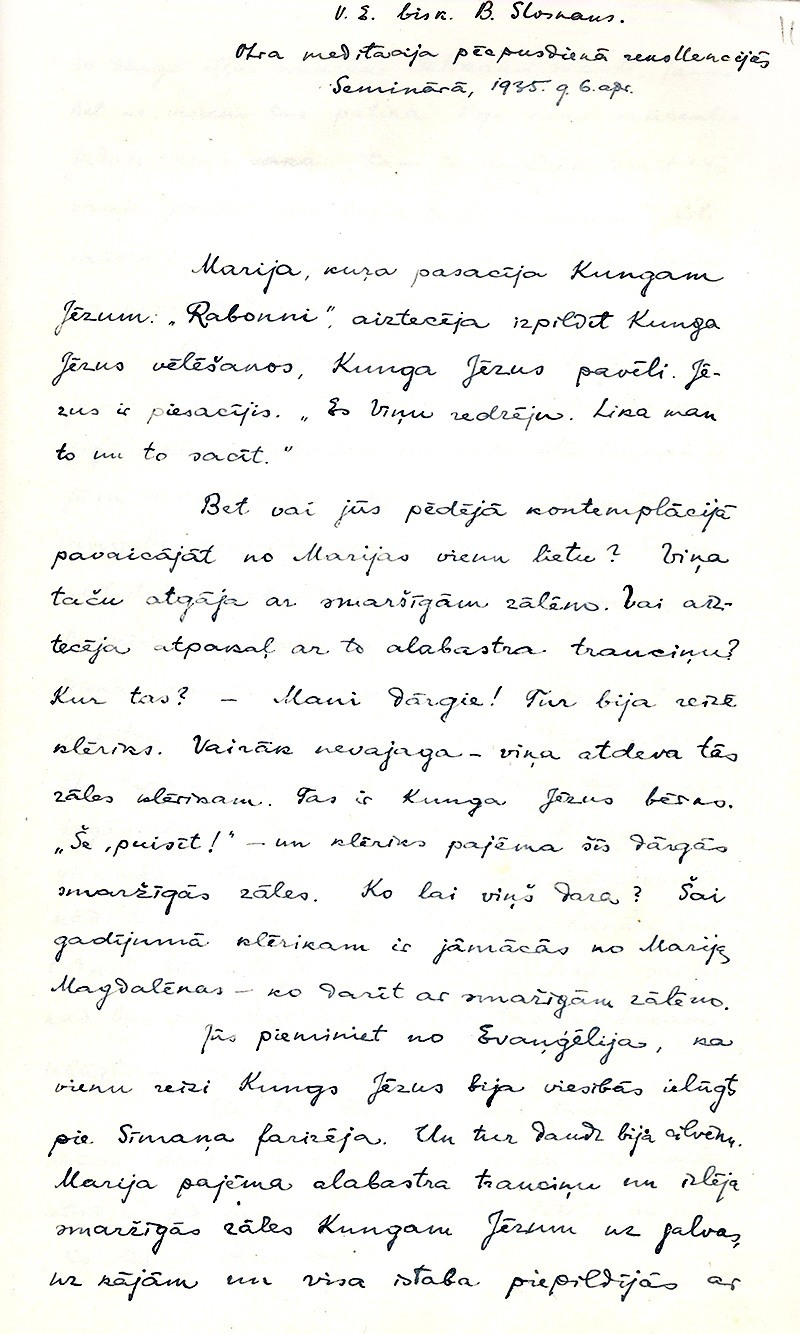 V. E. bisk. B. Sloskans.
Otra meditācija pēcpusdienā rekollekcijās
Seminārā, 1935. g. 6. apr.
Marija, kuŗa pasacīja Kungam
Jēzum: „Rabonni”, aiztecēja izpildīt Kunga
Jēzus vēlēšanos, Kunga Jēzus pavēli. Jē-
zus ir piesacījis. „Es Viņu redzēju. Lika man
to un to sacīt.”
Bet vai jūs pēdējā kontemplācijā
pavaicājāt no Marijas vienu lietu? Viņa
taču atgāja ar smaršīgām zālēm. Vai aiz-
tecēja atpakaļ ar to alabastra trauciņu?
Kur tas? – Mani dārgie! Tur bija reizē
klēriks. Vairāk nevajaga – viņa atdeva tās
zāles klērikam. Tas ir Kunga Jēzus bērns.
„Še, puisīt!” – un klēriks pajēma šīs dārgās
smaržīgās zāles. Ko lai viņš dara? Šai
gadījumā klērikam ir jāmācās no Marijas
Magdalēnas – ko darīt ar smaržīgām zālēm.
Jūs pieminiet no Evaņģēlija, ka
vienu reizi Kungs Jēzus bija viesībās ielūgts
pie Sīmaņa farizēja. Un tur daudz bija cilvēku.
Marija pajēma alabastra trauciņu un izlēja
smaržīgās zāles Kungam Jēzum uz galvas,
uz kājām un visa istaba piepildījās ar